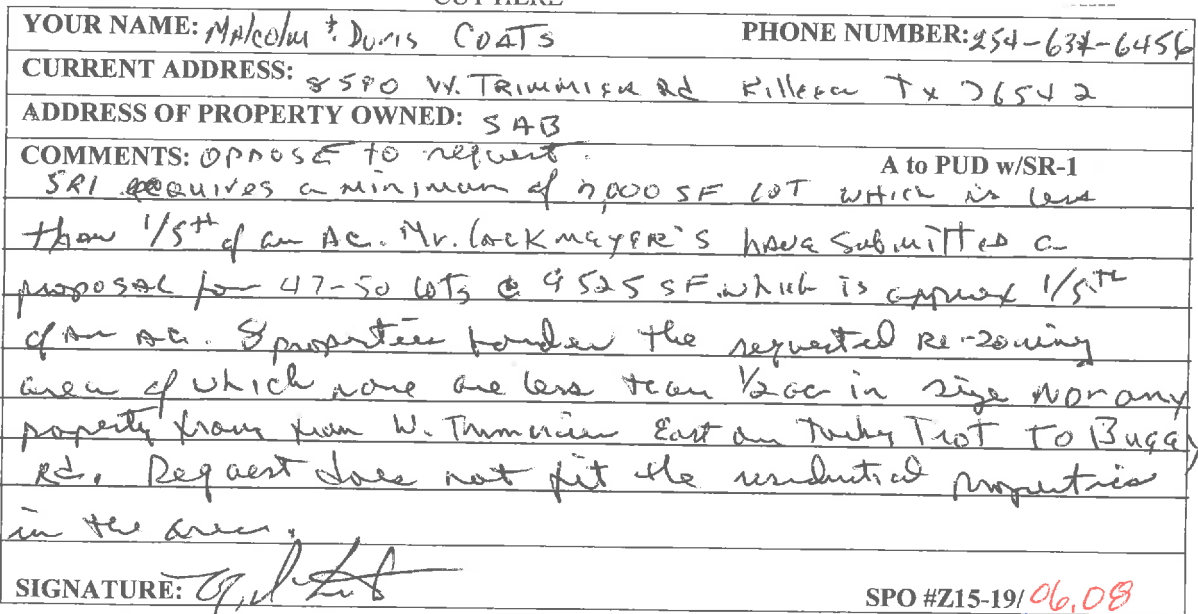 CUT HERE
YOUR NAME: Malcolm & Doris COATS PHONE NUMBER: 254-634-6456
CURRENT ADDRESS: 8580 W. TRIMMIER Rd Killeen Tx 76542
ADDRESS OF PROPERTY OWNED: SAB
COMMENTS: OPPOSE to request. A to PUD w/SR-1
SR1 requires a minimum of 7,000 SF LOT WHICH is less
than 1/5th of an Ac. Mr. Lockmeyer's have submitted a
proposal for 47-50 lots @ 9525 SF which is approx 1/5th
of an Ac. 8 properties border the requested Re-zoning
area of which none are less than 1/2 ac in size Nor any
property from W. Trimmier East on Turkey Trot TO Buggy
Rd. Request does not fit the residential properties
in the area.
SIGNATURE: SPO #Z15-19/ 06,08